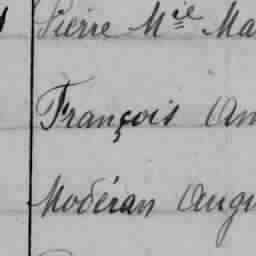 Pierre Mie Ma
François Am
Modéran Augu